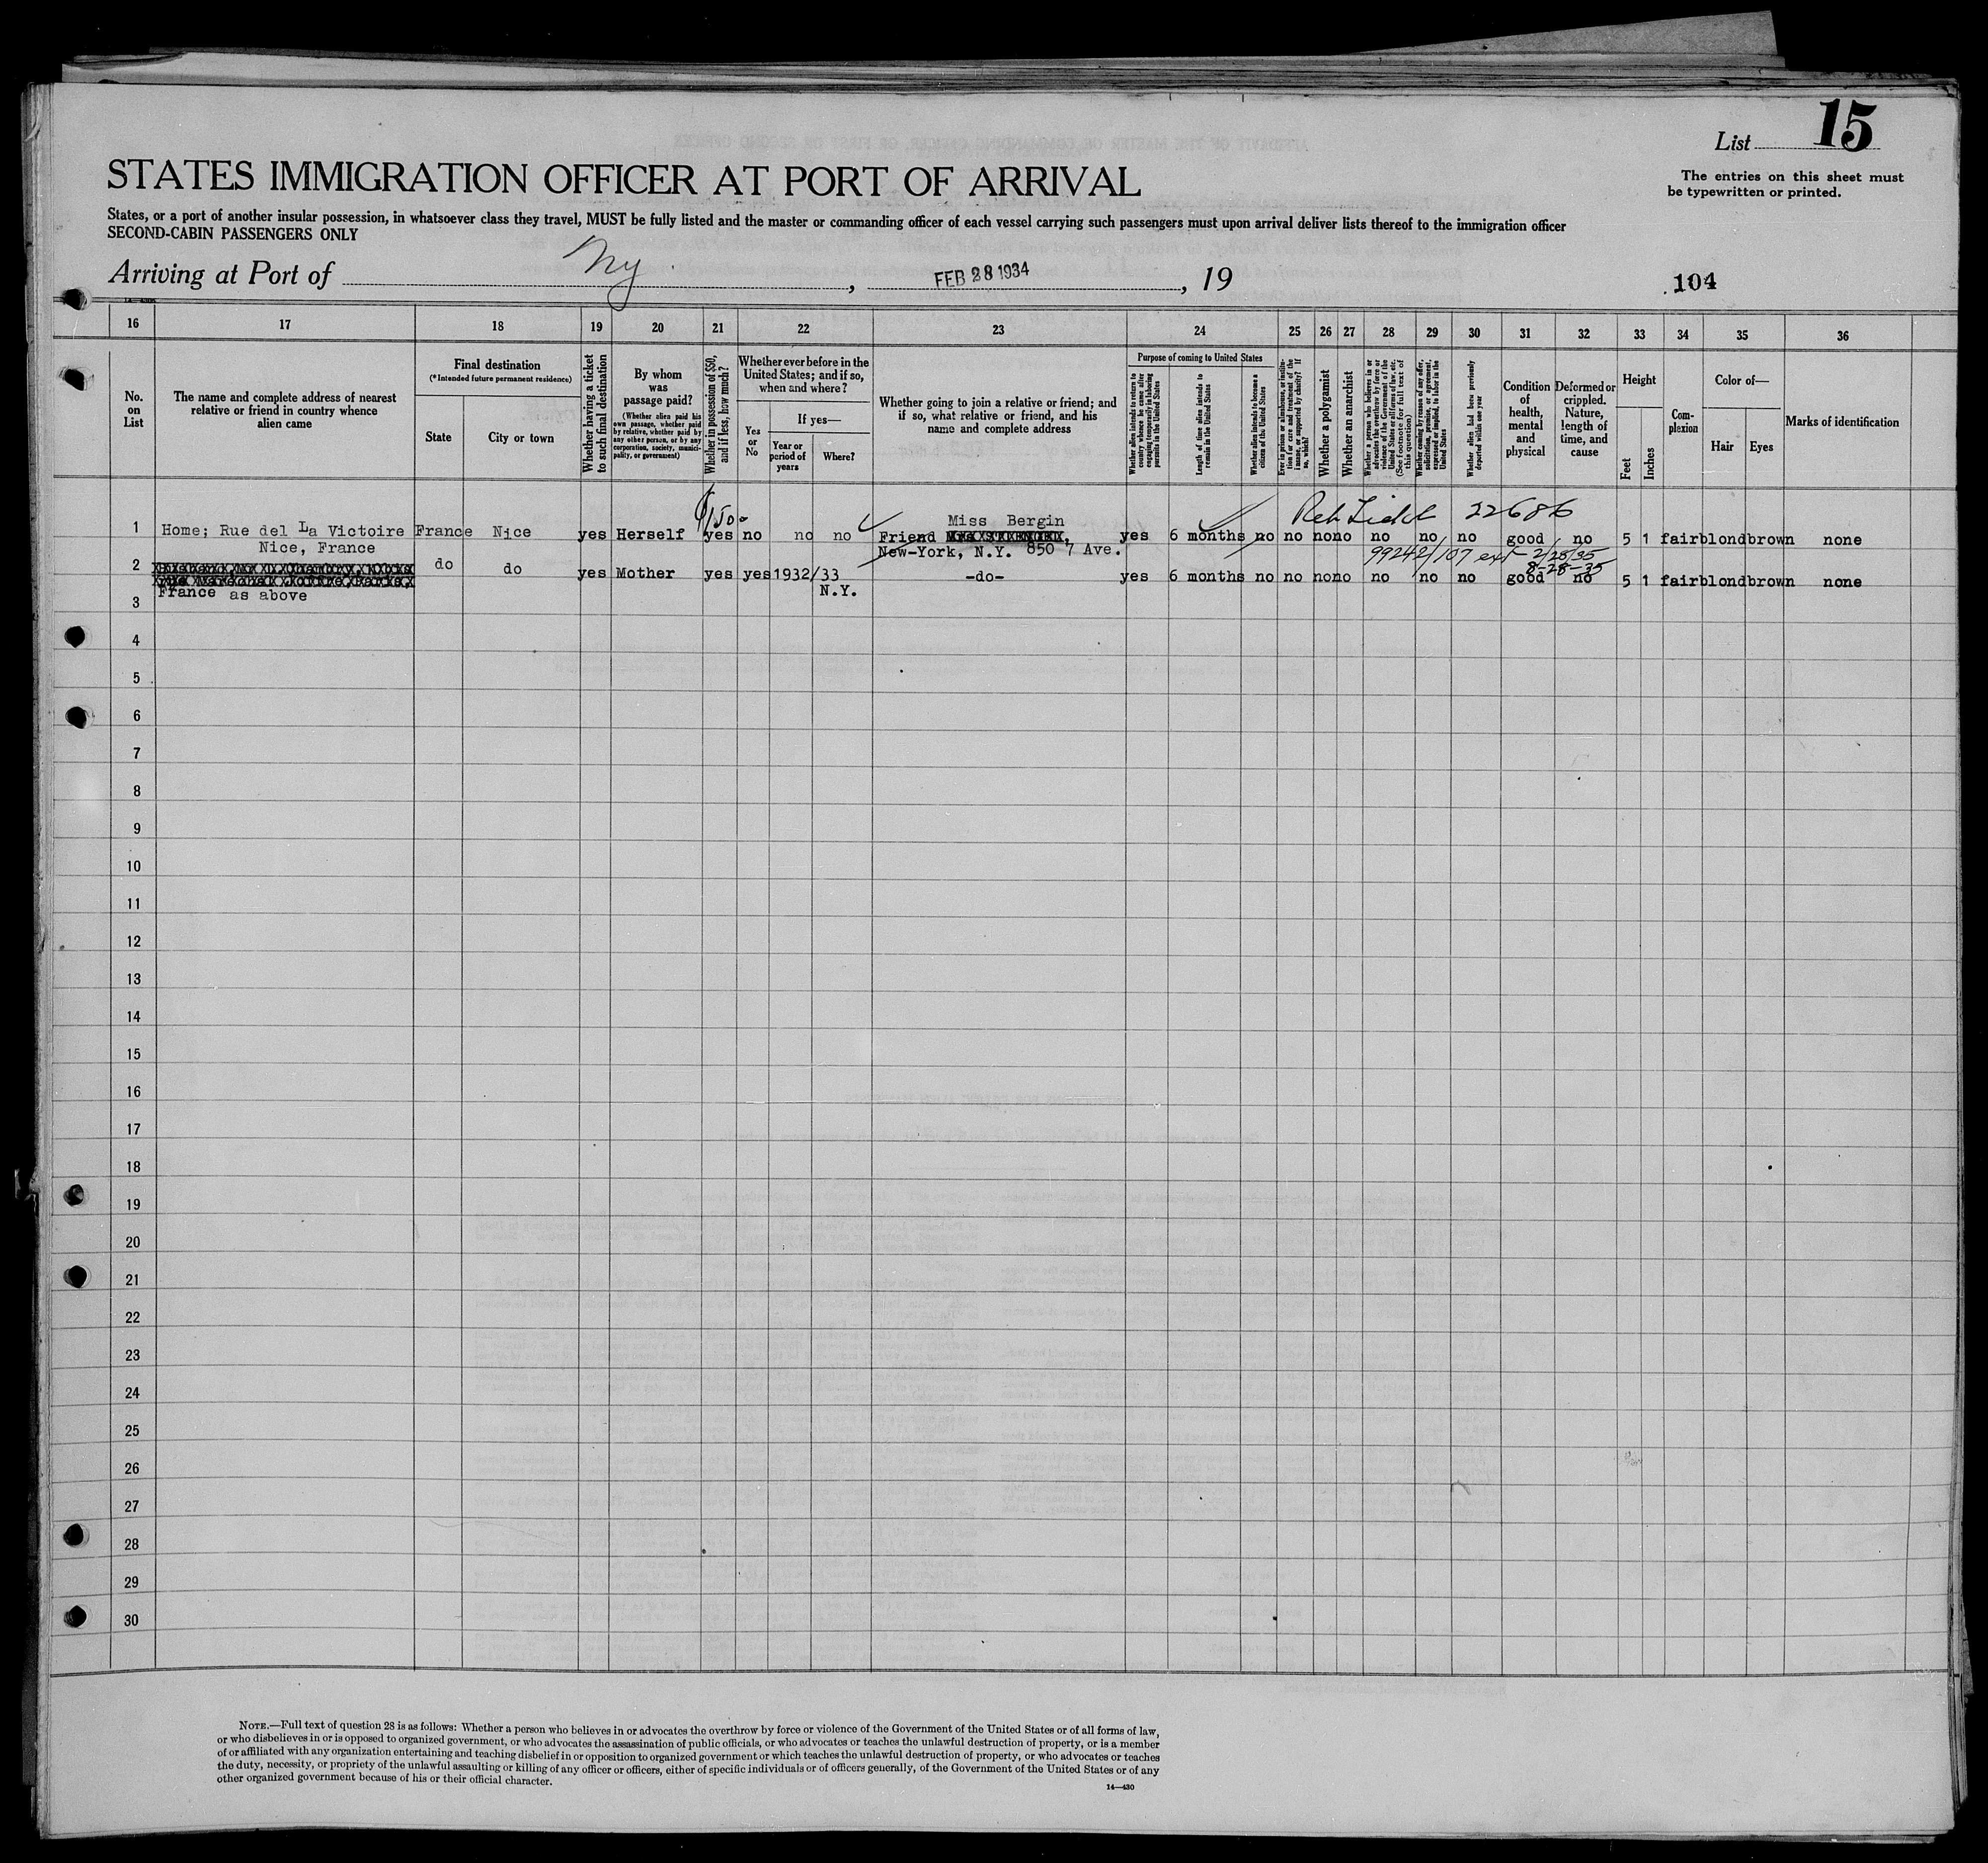 List 15
The entries on this sheet must
be typewritten or printed.
STATES IMMIGRATION OFFICER AT PORT OF ARRIVAL
States, or a port of another insular possession, in whatsoever class they travel, MUST be fully listed and the master or commanding officer of each vessel carrying such passengers must upon arrival deliver lists thereof to the immigration officer
SECOND-CABIN PASSENGERS ONLY
Arriving at Port of Ny , FEB 28 1934 , 19
104
16 17 18 19 20 21 22 23 24 25 26 27 28 29 30 31 32 33 34 35 36
No.
on
List
The name and complete address of nearest
relative or friend in country whence
alien came
Final destination
(*Intended future permanent residence)
State
City or town
Whether having a ticket
to such final destination
By whom
was
passage paid?
(Whether alien paid his
own passage, whether paid
by relative, whether paid by
any other person, or by any
corporation, society, munici-
pality, or government)
Whether in possession of $50,
and if less, how much?
Whether ever before in the
United States; and if so,
when and where?
Yes
or
No
If yes—
Year or
period of
years
Where?
Whether going to join a relative or friend; and
if so, what relative or friend, and his
name and complete address
Purpose of coming to United States
Whether alien intends to return to
country whence he came after
engaging temporarily in laboring
pursuits in the United States
Length of time alien intends to
remain in the United States
Whether alien intends to become a
citizen of the United States
Ever in prison or almshouse, or institu-
tion for care and treatment of the
insane, or supported by charity? If
so, which?
Whether a polygamist
Whether an anarchist
Whether a person who believes in or
advocates the overthrow by force or
violence of the Government of the
United States or all forms of law, etc.
(See footnote for full text of
this question)
Whether coming by reason of any offer,
solicitation, promise, or agreement,
expressed or implied, to labor in the
United States
Whether alien had been previously
deported within one year
Condition
of
health,
mental
and
physical
Deformed or
crippled.
Nature,
length of
time, and
cause
Height
Feet
Inches
Com-
plexion
Color of—
Hair
Eyes
Marks of identification
$150
22686
Miss Bergin
1 Home; Rue del La Victoire France Nice yes Herself yes no no no Friend yes 6 months no no no no no no no good no 5 1 fair blond brown none
Nice, France
New-York, N.Y. 850 7 Ave.
99242/107 ext 2/28/35
8-28-35
2 do do yes Mother yes yes 1932/33 -do- yes 6 months no no no no no no no good no 5 1 fair blond brown none
France as above N.Y.
3
4
5
6
7
8
9
10
11
12
13
14
15
16
17
18
19
20
21
22
23
24
25
26
27
28
29
30
NOTE.—Full text of question 28 is as follows: Whether a person who believes in or advocates the overthrow by force or violence of the Government of the United States or of all forms of law,
or who disbelieves in or is opposed to organized government, or who advocates the assassination of public officials, or who advocates or teaches the unlawful destruction of property, or is a member
of or affiliated with any organization entertaining and teaching disbelief in or opposition to organized government or which teaches the unlawful destruction of property, or who advocates or teaches
the duty, necessity, or propriety of the unlawful assaulting or killing of any officer or officers, either of specific individuals or of officers generally, of the Government of the United States or of any
other organized government because of his or their official character.
14—430